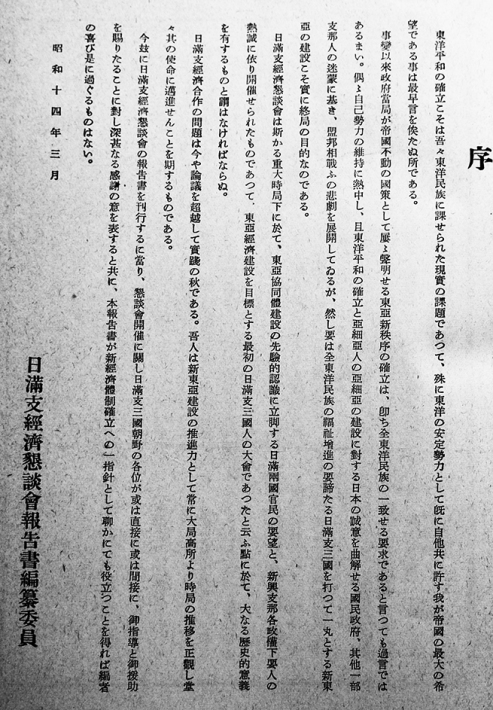 序
東洋平和の確立こそは吾々東洋民族に課せられた現實の課題であつて、殊に東洋の安定勢力として旣に自他共に許す我が帝國の最大の希
望である事は最早言を俟たぬ所である。
事變以來政府當局が帝國不動の國策として屢〻聲明せる東亞新秩序の確立は、卽ち全東洋民族の一致せる要求であると言つても過言では
あるまい。偶〻自己勢力の維持に熱中し、且東洋平和の確立と亞細亞人の亞細亞の建設に對する日本の誠意を曲解せる國民政府、其他一部
支那人の迷蒙に基き、盟邦相戰ふの悲劇を展開してゐるが、然し要は全東洋民族の福祉增進の要諦たる日滿支三國を打つて一丸とする新東
亞の建設こそ實に終局の目的なのである。
日滿支經濟懇談會は斯かる重大時局下に於て、東亞協同體建設の先驗的認識に立脚する日滿兩國官民の要望と、新興支那各政權下要人の
熱誠に依り開催せられたものであつて、東亞經濟建設を目標とする最初の日滿支三國人の大會であつたと云ふ點に於て、大なる歷史的意義
を有するものと謂はなければならぬ。
日滿支經濟合作の問題は今や論議を超越して實踐の秋である。吾人は新東亞建設の推進力として常に大局高所より時局の推移を正觀し堂
々其の使命に邁進せんことを期するものである。
今玆に日滿支經濟懇談會の報告書を刊行するに當り、懇談會開催に關し日滿支三國朝野の各位が或は直接に或は間接に、御指導と御援助
を賜りたることに對し深甚なる感謝の意を表すると共に、本報告書が新經濟體制確立への一指針として聊かにても役立つことを得れば編者
の喜び是に過ぐるものはない。
昭和十四年三月
日滿支經濟懇談會報告書編纂委員